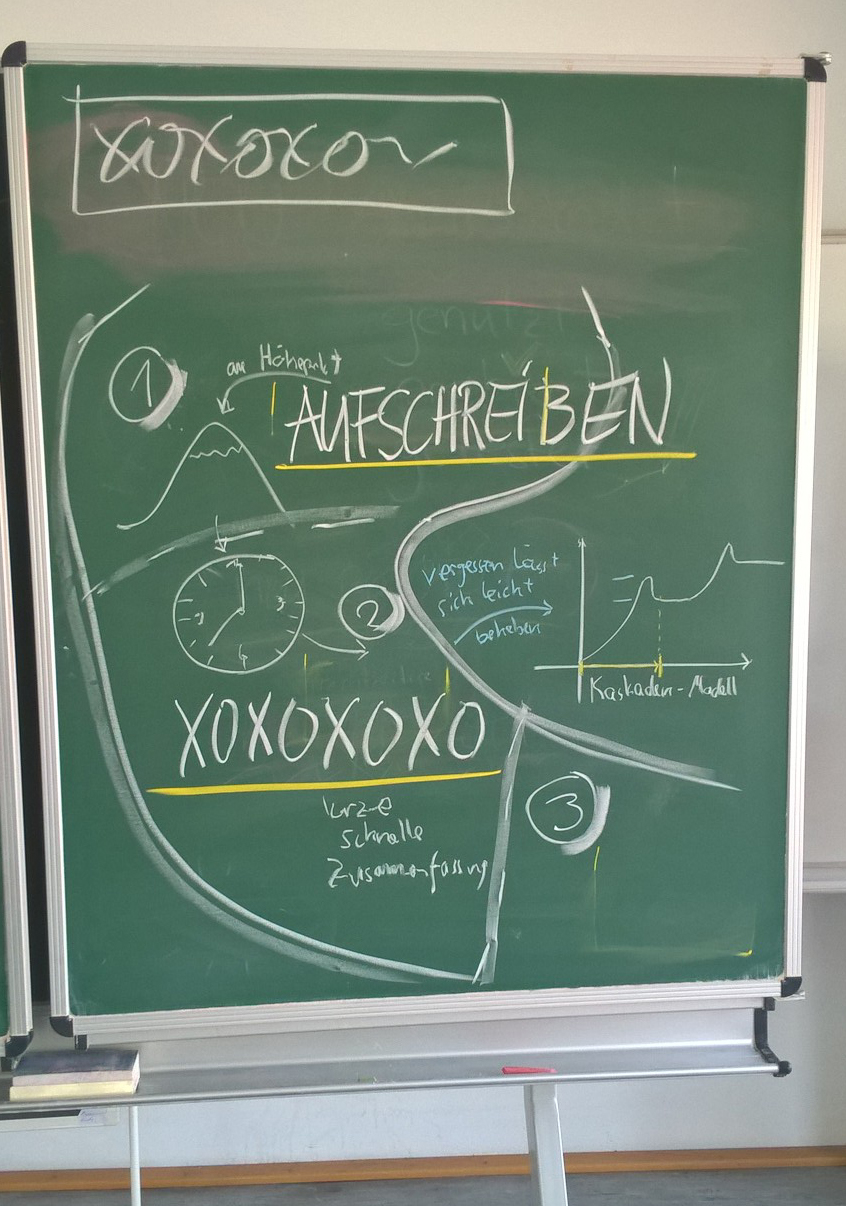 xoxoxo
1
am Höhepunkt
AUFSCHREIBEN
vergessen lässt
sich leicht
beheben
2
9 3
6
Kaskaden-Modell
XOXOXOXO
3
kurze
schnelle
Zusammenfassung